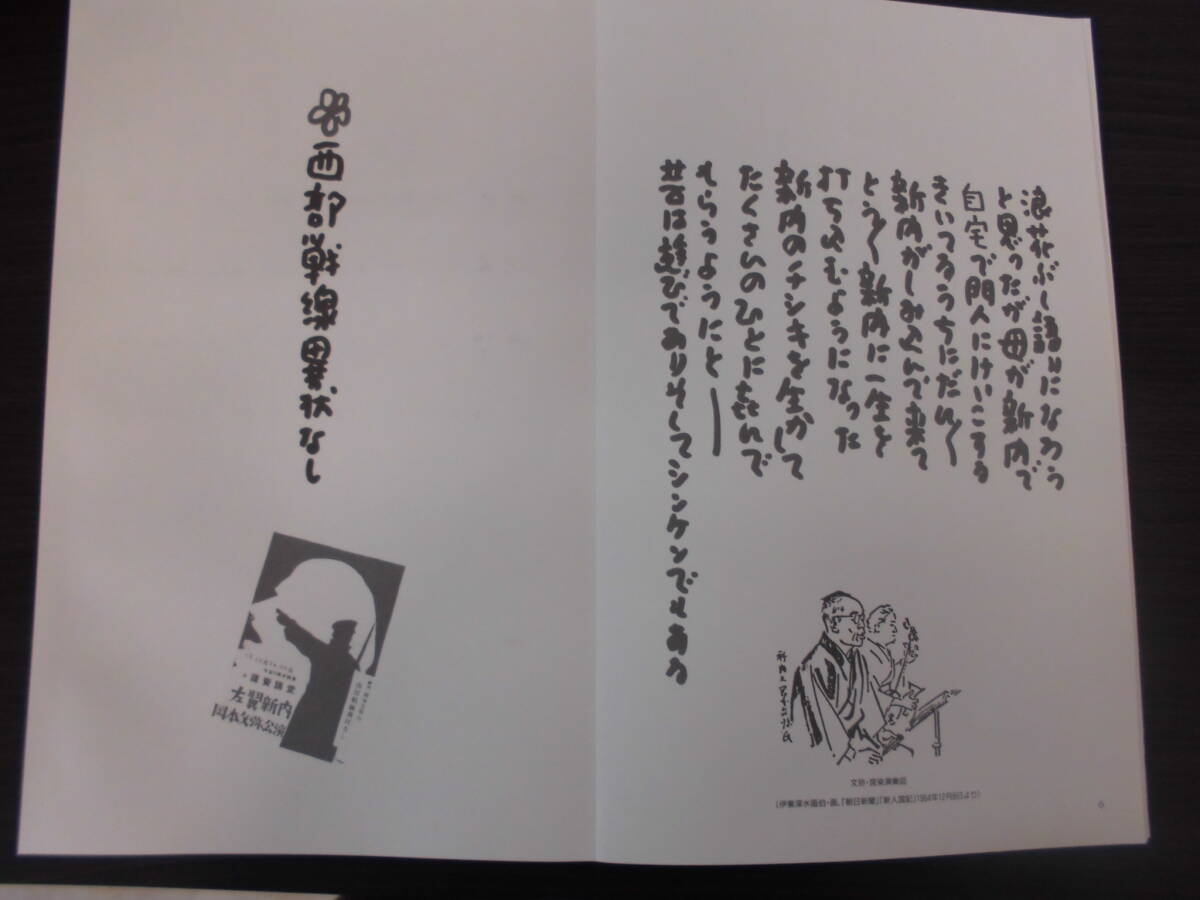 浪花ぶし語りになろう
と思ったが母が新内で
自宅で門人にけいこする
きいてるうちにだん〱
新内がしみ込んで来て
とう〱新内に一生を
打ち込むようになった
新内のチシキを生かして
たくさんのひとに喜んで
もらうようにと──
芸は遊びでありそしてシンケンでもある
文弥・宮染演奏図
(伊東深水画伯・画、「朝日新聞」「新人国記」1964年12月8日より)
6
西部戦線異状なし
蓬莱講堂
左翼新内
岡本文弥公演